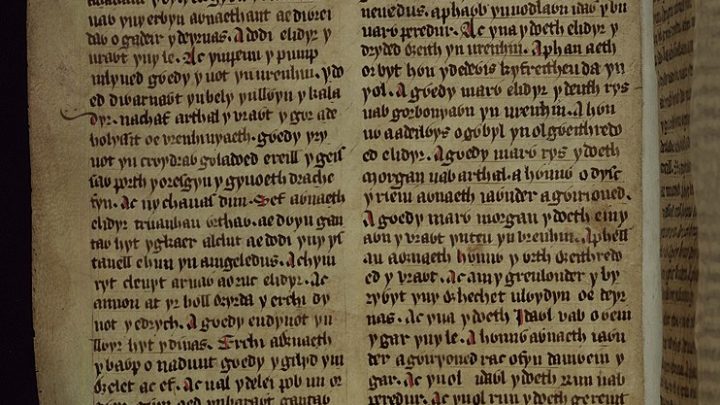 uab yn yerbyn aỽnaethant ae diorei
daỽ o gadeir y deyrnas. A dodi elidyr y
vraỽt yny le. Ac ympenn y pump
mlyned gỽedy y uot yn urenhin. ydo
ed diwarnaỽt yn hely yn llỽyn y kala
dyr. nachaf arthal y vraỽt y gỽr ade
holyssit oe vrenhinyaeth. gỽedy yry
uot yn crỽydraỽ goladoed ereill y geis
saỽ porth y oresgyn y gyuoeth drache
fyn. Ac ny chauas dim. Sef aỽnaeth
elidyr truanhau ỽrthaỽ. ae dỽyn gan
taỽ hyt yghaer alclut ae dodi yny ys
tauell ehun yn amgeledus. A chym
ryt cleuyt arnaỽ aoruc elidyr. Ac
anuon at yr holl ỽyrda y erchi dy
uot y edrych. A gỽedy eu dyuot yn
llỽyr hyt y dinas. Erchi aỽnaeth
y baỽp o nadunt gỽedy y gilyd ym
ỽelet ac ef. Ac ual y delei pob un or
uenedus. a phaỽb yn uodlaỽn idaỽ yỽn
uarỽ peredur. Ac yna y doeth elidyr y
dryded ỽeith yn vrenhin. A phan aeth
or byt hỽn y dewis kyfreitheu da yn
y ol. A gỽedy marỽ elidyr y deuth rys
uab gorbonyaỽn yn vrenhin. A hỽn
nỽ aadeilỽys o gobyl yn ol gỽeithredo
ed elidyr. A gỽedy marỽ rys y doeth
morgan uab arthal. a hỽnnỽ o dysc
y rieni aỽnaeth iaỽnder agỽirioned.
A gỽedy marỽ morgan y doeth einy
aỽn y vraỽt ynteu yn vrenhin. A phell
au aỽnaeth hỽnnỽ y ỽrth ỽeithredo
ed y vraỽt. Ac am y greulonder y by
ryỽyt yny chỽechet ulỽydyn oe deyr
nas. Ac yna y doeth Idỽal vab oỽein
y gar yny le. A hỽnnỽ aỽnaeth iaỽn
der agỽirioned rac ofyn damỽein y
gar. Ac yn ol idỽal y doeth run uab
peredur. Ac yn ol run y doeth gereint